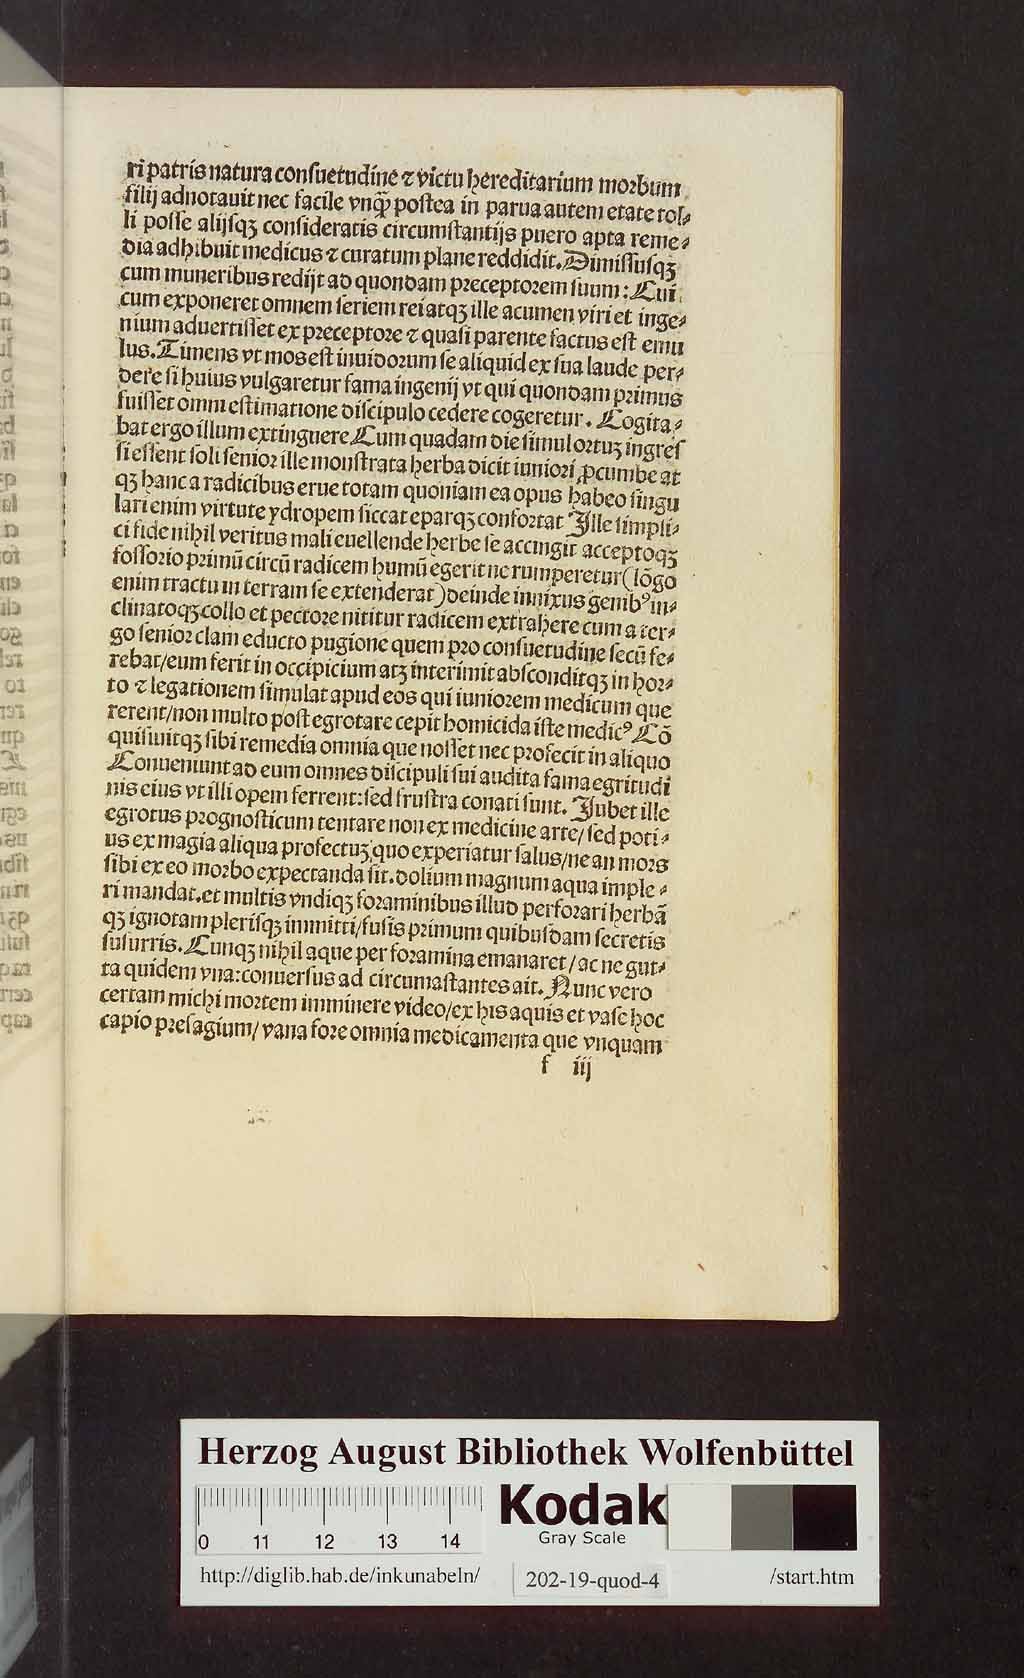 ri patris natura consuetudine ⁊ victu hereditarium morbum
filij adnotauit nec facile vnqͣ̄ postea in parua autem etate tol⸗
li posse alijsqꝫ consideratis circumstantijs puero apta reme⸗
dia adhibuit medicus ⁊ curatum plane reddidit. Dimissusqꝫ
cum muneribus redijt ad quondam preceptorem suum: Cui
cum exponeret omnem seriem rei atqꝫ ille acumen viri et inge⸗
nium aduertisset ex preceptore ⁊ quasi parente factus est emu
lus. Timens vt mos est inuidorum se aliquid ex sua laude per⸗
dere si huius vulgaretur fama ingenij vt qui quondam primus
fuisset omni estimatione discipulo cedere cogeretur. Cogita⸗
bat ergo illum extinguere Cum quadam die simul ortuꝫ ingres
si essent soli senior ille monstrata herba dicit iuniori ꝓcumbe at
qꝫ hanc a radicibus erue totam quoniam ea opus habeo singu
lari enim virtute ydropem siccat eparqꝫ confortat Ille simpli⸗
ci fide nihil veritus mali euellende herbe se accingit acceptoqꝫ
fossorio primū circū radicem humū egerit ne rumperetur (lōgo
enim tractu in terram se extenderat) deinde innixus genibꝰ in⸗
clinatoqꝫ collo et pectore nititur radicem extrahere cum a ter⸗
go senior clam educto pugione quem pro consuetudine secū fe⸗
rebat/eum ferit in occipicium atqꝫ interimit absconditqꝫ in hor⸗
to ⁊ legationem simulat apud eos qui iuniorem medicum que
rerent/non multo post egrotare cepit homicida iste medicꝰ Cō
quisiuitqꝫ sibi remedia omnia que nosset nec profecit in aliquo
Conueniunt ad eum omnes discipuli sui audita fama egritudi
nis eius vt illi opem ferrent: sed frustra conati sunt. Jubet ille
egrotus prognosticum tentare non ex medicine arte/ sed poti⸗
us ex magia aliqua profectuꝫ quo experiatur salus/ne an mors
sibi ex eo morbo expectanda sit. dolium magnum aqua imple⸗
ri mandat. et multis vndiqꝫ foraminibus illud perforari herbā
qꝫ ignotam plerisqꝫ immitti/fusis primum quibusdam secretis
susurris. Cunqꝫ nihil aque per foramina emanaret/ ac ne gut⸗
ta quidem vna: conuersus ad circumastantes ait. Nunc vero
certam michi mortem imminere video/ex his aquis et vase hoc
capio presagium/ vana fore omnia medicamenta que vnquam
f iij
Herzog August Bibliothek Wolfenbüttel
0 11 12 13 14
Kodak
Gray Scale
http://diglib.hab.de/inkunabeln/
202-19-quod-4
/start.htm